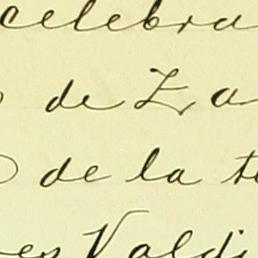 celebra
de Za
de la t
es Valdi